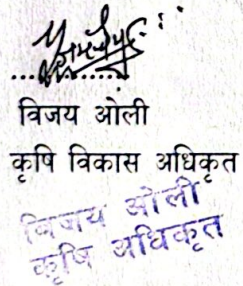 विजय ओली
कृषि विकास अधिकृत
विजय ओली
कृषि अधिकृत